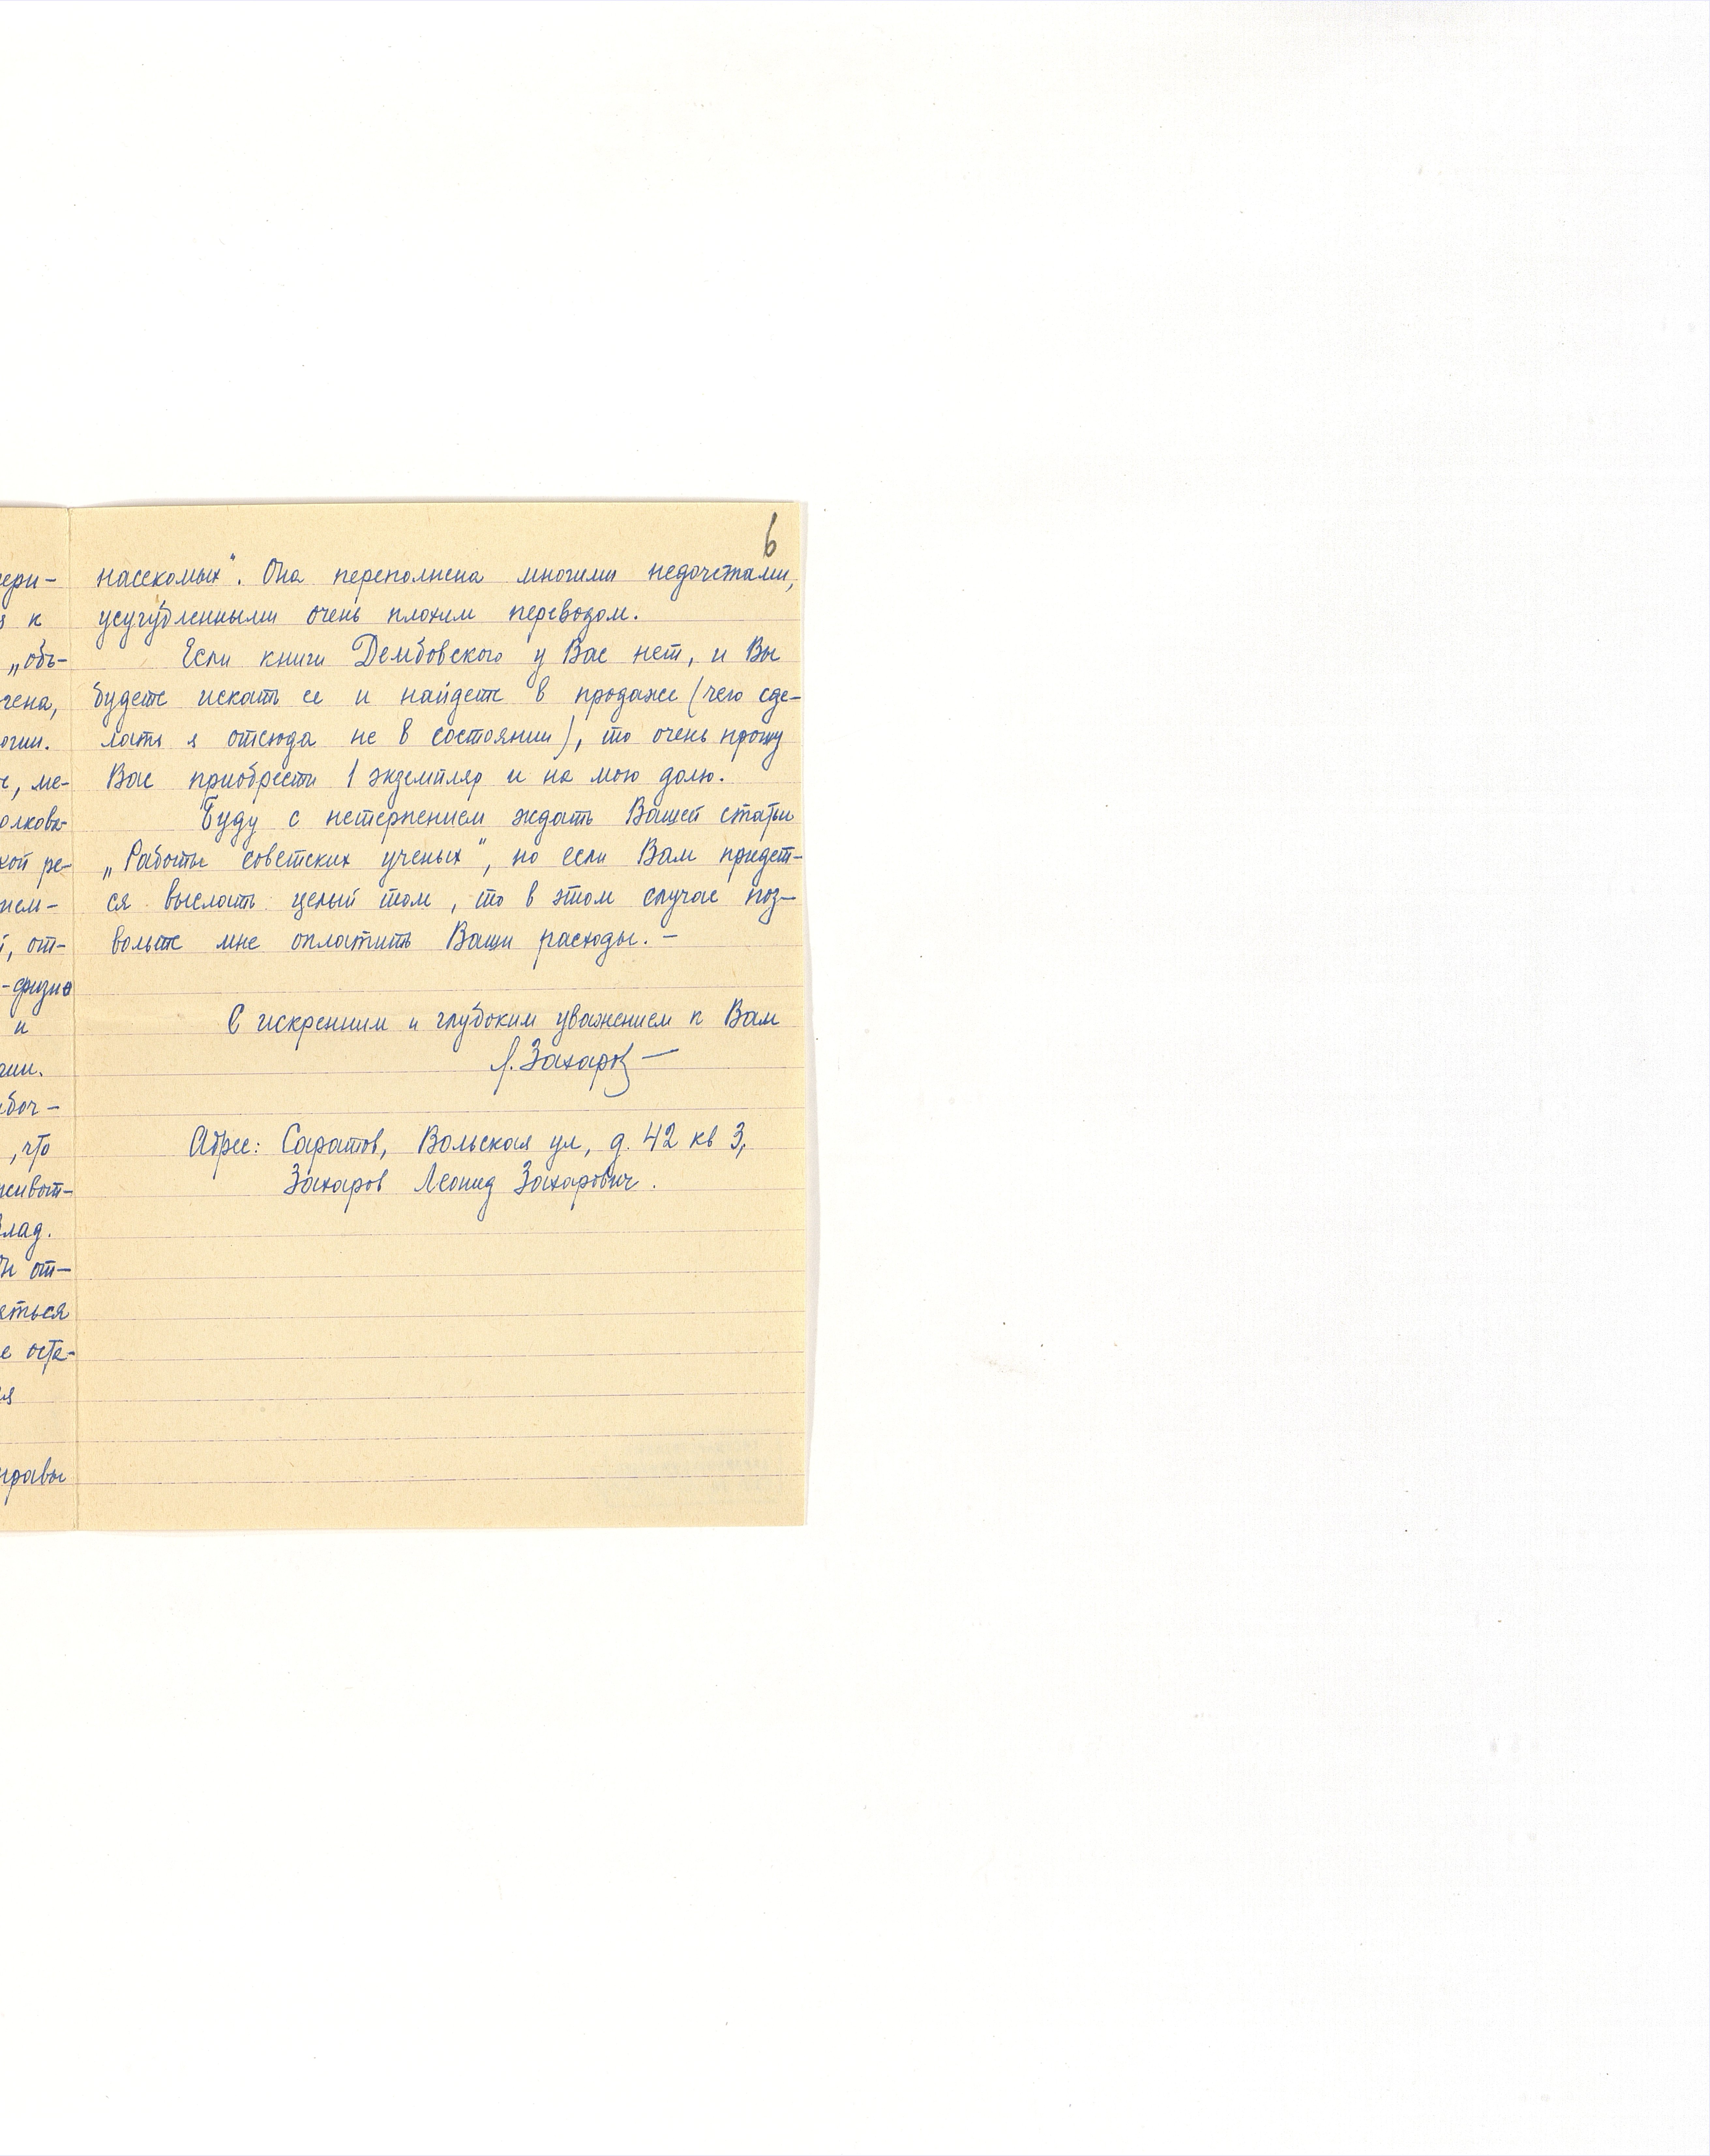 6
насекомых". Она переполнена многими недочетами,
усугубленными очень плохим переводом.
Если книги Дембовского у Вас нет, и Вы
будете искать ее и найдете в продаже (чего сде-
лать я отсюда не в состоянии), то очень прошу
Вас приобрести 1 экземпляр и на мою долю.
Буду с нетерпением ждать Вашей статьи
„Работы советских ученых", но если Вам придет-
ся выслать целый том, то в этом случае поз-
вольте мне оплатить Ваши расходы. –
С искренним и глубоким уважением к Вам
Л. Захаров –
Адрес: Саратов, Вольская ул, д. 42 кв 3,
Захаров Леонид Захарович.
ери-
к
„объ-
чена,
огии.
, ме-
олкова-
кой ре-
нем-
, от-
-физио
и
гии.
боч-
, что
живот-
лад.
от-
яться
е оста-
ся
нравы